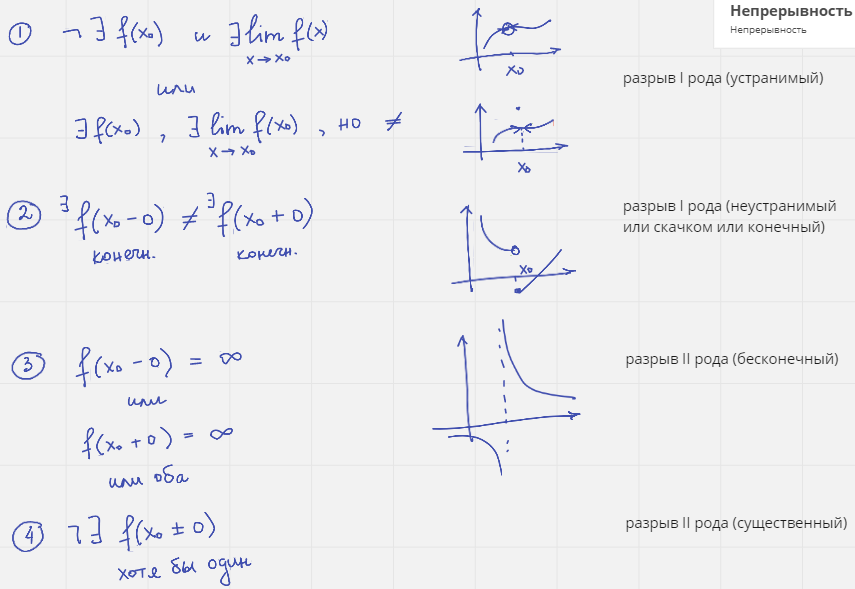 Непрерывность
Непрерывность
① ¬ ∃ f(x₀) и ∃ lim f(x)
x → x₀
x₀
разрыв I рода (устранимый)
или
∃ f(x₀) , ∃ lim f(x₀) , но ≠
x → x₀
x₀
② ∃ f(x₀ - 0) ≠ ∃ f(x₀ + 0)
конечн. конечн.
x₀
разрыв I рода (неустранимый
или скачком или конечный)
③ f(x₀ - 0) = ∞
или
f(x₀ + 0) = ∞
или оба
разрыв II рода (бесконечный)
④ ¬∃ f(x₀ ± 0)
хотя бы один
разрыв II рода (существенный)